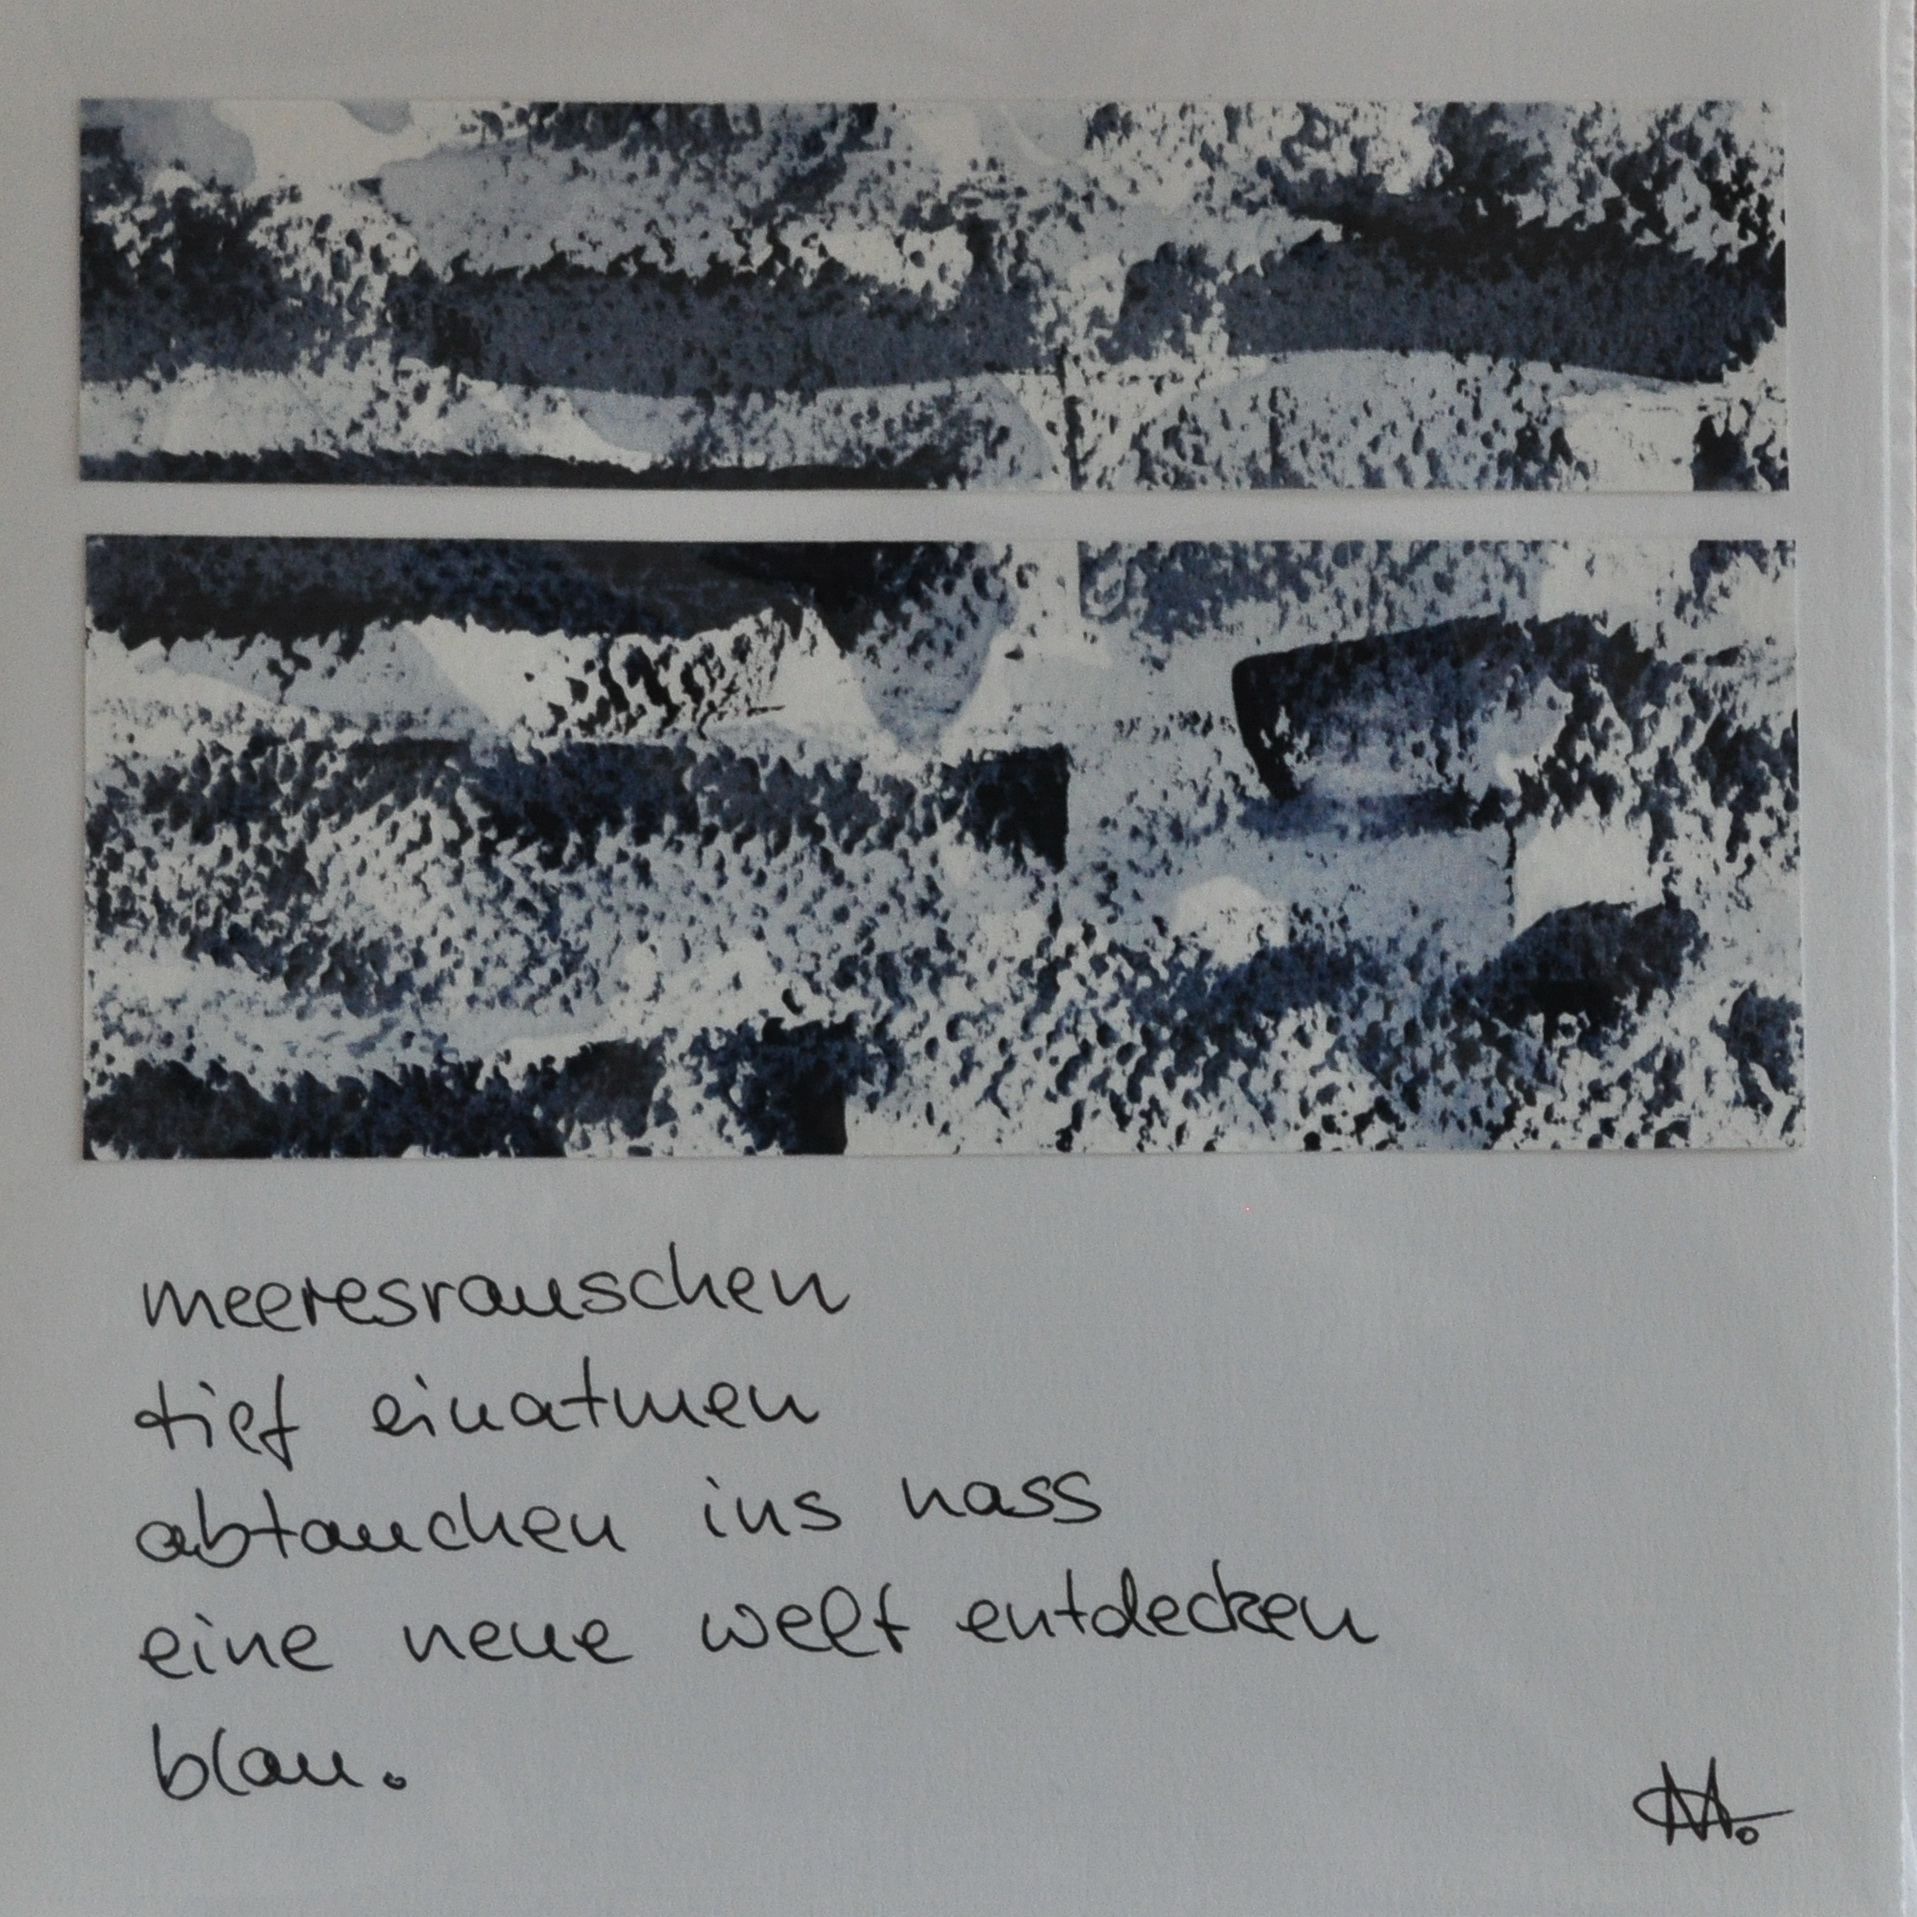 meeresrauschen
tief einatmen
abtauchen ins nass
eine neue welt entdecken
blau.